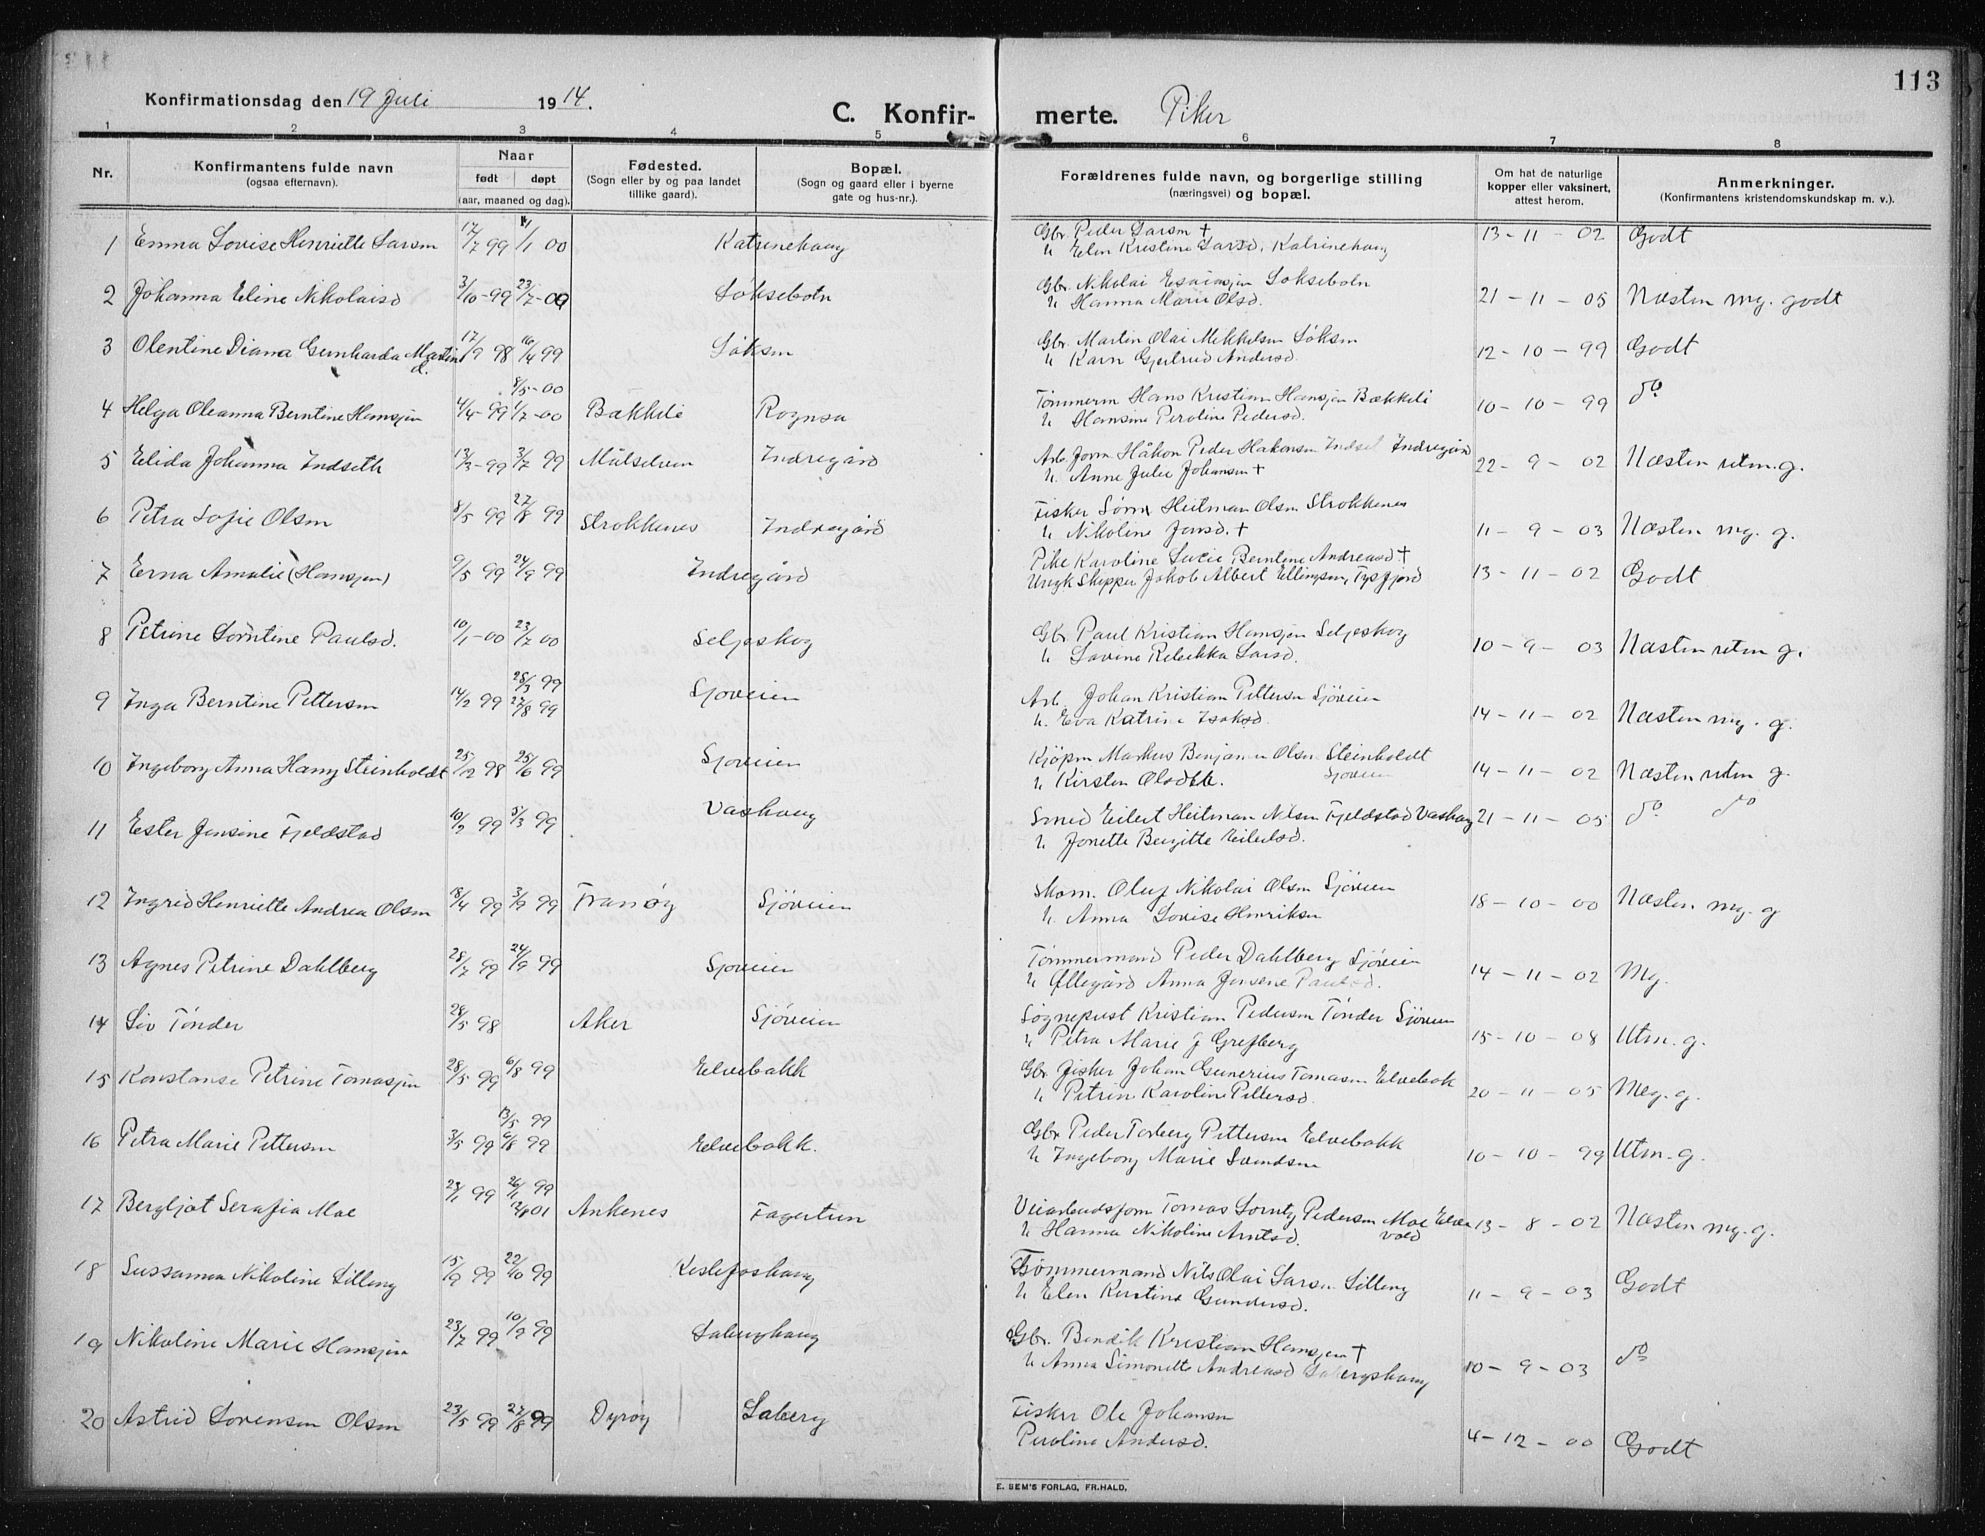 113
Konfirmationsdag den 19 Juli 1914.
C. Konfirmerte. Piker
1 2 3 4 5 6 7 8
Nr. Konfirmantens fulde navn (ogsaa efternavn). Naar født døpt (aar, maaned og dag). Fødested. (Sogn eller by og paa landet tillike gaard). Bopæl. (Sogn og gaard eller i byerne gate og hus-nr.). Forældrenes fulde navn, og borgerlige stilling (næringsvei) og bopæl. Om hat de naturlige kopper eller vaksinert, attest herom. Anmerkninger. (Konfirmantens kristendomskundskap m. v.).
1 Emma Lovise Henriette Larsen 17/7 99 1/1 00 Katrinehaug Gbr. Peder Larsen †
u Elen Kristine Larsd. Katrinehaug 13-11-02 Godt
2 Johanna Eline Nikolaisd 3/10-99 23/7-00 Løksebotn Gbr. Nikolai Esaiasen Løksebotn
u Hanna Marie Olsd. 21-11-05 Næsten mg. godt
3 Olentine Diana Gunharda Martind. 17/9 98 16/4 99 Løksen Gbr. Martin Olai Mikkelsen Løksen
u Karn Gjertrud Andersd. 12-10-99 Godt
8/5-00
4 Helga Oleanna Berntine Hansjen 4/4-99 1/7-00 Bækkeli Rognsa Tømmerm Hans Kristian Hansjen Bækkeli
u Hansine Peroline Pedersd. 10-10-99 do
5 Elida Johanna Indseth 13/3-99 3/7 99 Målselven Indregård Arb. Jorm Håkon Peder Hakonsen Indset Indregård
u. Anne Julie Johansen † 22-9-02 Næsten utm. g.
6 Petra Sofie Olsen 8/5 99 27/8 99 Strokkenes Indregård Fisker Søren Heitman Olsen Strokkenes
u Nikoline Jensd. † 11-9-03 Næsten mg. g.
7 Erna Amalie (Hansjen) 9/5 99 24/9 99 Indregård Pike Karoline Lucie Berntine Andreasd †
Ungk Skipper Jakob Albert Ellingsen, Tysfjord 13-11-02 Godt
8 Petrine Lorntine Paulsd. 10/1-00 23/7 00 Seljeskog Gbr. Paul Kristian Hansjen Seljeskog
u Lovine Rebekka Larsd. 10-9-03 Næsten utm g.
9 Inga Berntine Pettersen 14/2 99 28/3 99 27/8 99 Sjøveien Arb. Johan Kristian Pettersen Sjøveien
u. Eva Katrine Isaksd. 14-11-02 Næsten mg. g.
10 Ingeborg Anna Hany Steinholdt 25/12 98 25/6 99 Sjøveien Kjøpm Markus Benjamin Olsen Steinholdt
u Kirsten Olsdtr. Sjøveien 14-11-02 Næsten utm g.
11 Ester Jensine Fjeldstad 10/2 99 5/3 99 Vashaug Smed Eilert Heitman Nilsen Fjeldstad Vashaug
u Jonette Bergitte Eilertsd. 21-11-05 do do
12 Ingrid Henriette Andrea Olsen 18/4 99 3/9 99 Tranøy Sjøveien Skom. Oluf Nikolai Olsen Sjøveien
u. Anna Lovise Henriksen 18-10-00 Næsten mg. g
13 Agnes Petrine Dahlberg 28/7 99 24/9 99 Sjøveien Tømmermand Peder Dahlberg Sjøveien
u Øllegård Anna Jensine Paulsd. 14-11-02 Mg.
14 Liv Tønder 28/5 98 Aker Sjøveien Sogneprest Kristian Pedersen Tønder Sjøveien
u Petra Marie J Grefberg 15-10-08 Utm. g.
15 Konstanse Petrine Tomasjen 28/5 99 6/8 99 Elvebakk Gbr Fisker Johan Gunerius Tomasen Elvebak
u Petrin Karoline Pettersd. 20-11-05 Meg. g.
16 Petra Marie Pettersen 3/5 99 13/5 99 6/8 99 Elvebakk. Gbr Peder Torberg Pettersen Elvebakk
u Ingeborg Marie Samdsen 10-10-99 Utm. g.
17 Bergljot Serafia Moe 23/1 99 26/1 99 Ankenes Fagertun Veiarbeidsform Tomas Lorntz Pedersen Moe Elvevold
u Hanna Nikoline Arntsd. 13-8-02 Næsten mg. g.
18 Sussanna Nikoline Lilleng 15/9 99 22/10 99 Kistefoshaug Tømmermand Nils Olai Larsen Lilleng
u Elen Kirstine Gundersd. 11-9-03 Godt
19 Nikoline Marie Hansjen 23/7 99 10/9 99 Laberghaug Gbr. Bendik Kristian Hansjen †
u Anna Simonette Andreasd Labergshaug 10-9-03 do
20 Astrid Lorensen Olsen 23/5 99 27/8 99 Dyrøy Laberg Fisker Ole Johansen
Peroline Andersd. 4-12-00 Godt
E. SEM'S FORLAG, FR.HALD.